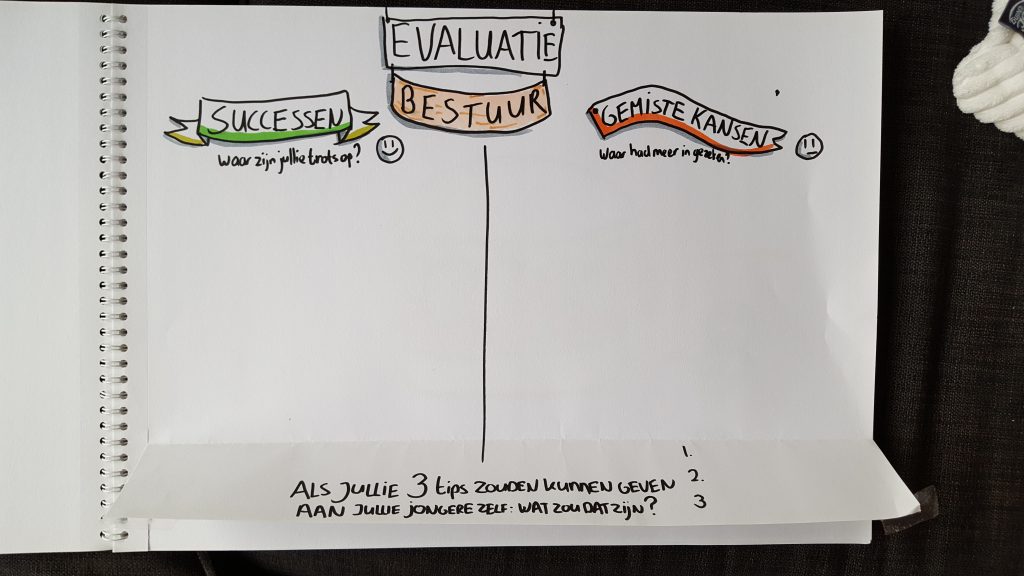 EVALUATIE
BESTUUR
SUCCESSEN
Waar zijn jullie trots op?
GEMISTE KANSEN
Waar had meer in gezeten?
ALS JULLIE 3 tips ZOUDEN KUNNEN GEVEN
AAN JULLIE JONGERE ZELF: WAT ZOU DAT ZIJN?
1.
2.
3